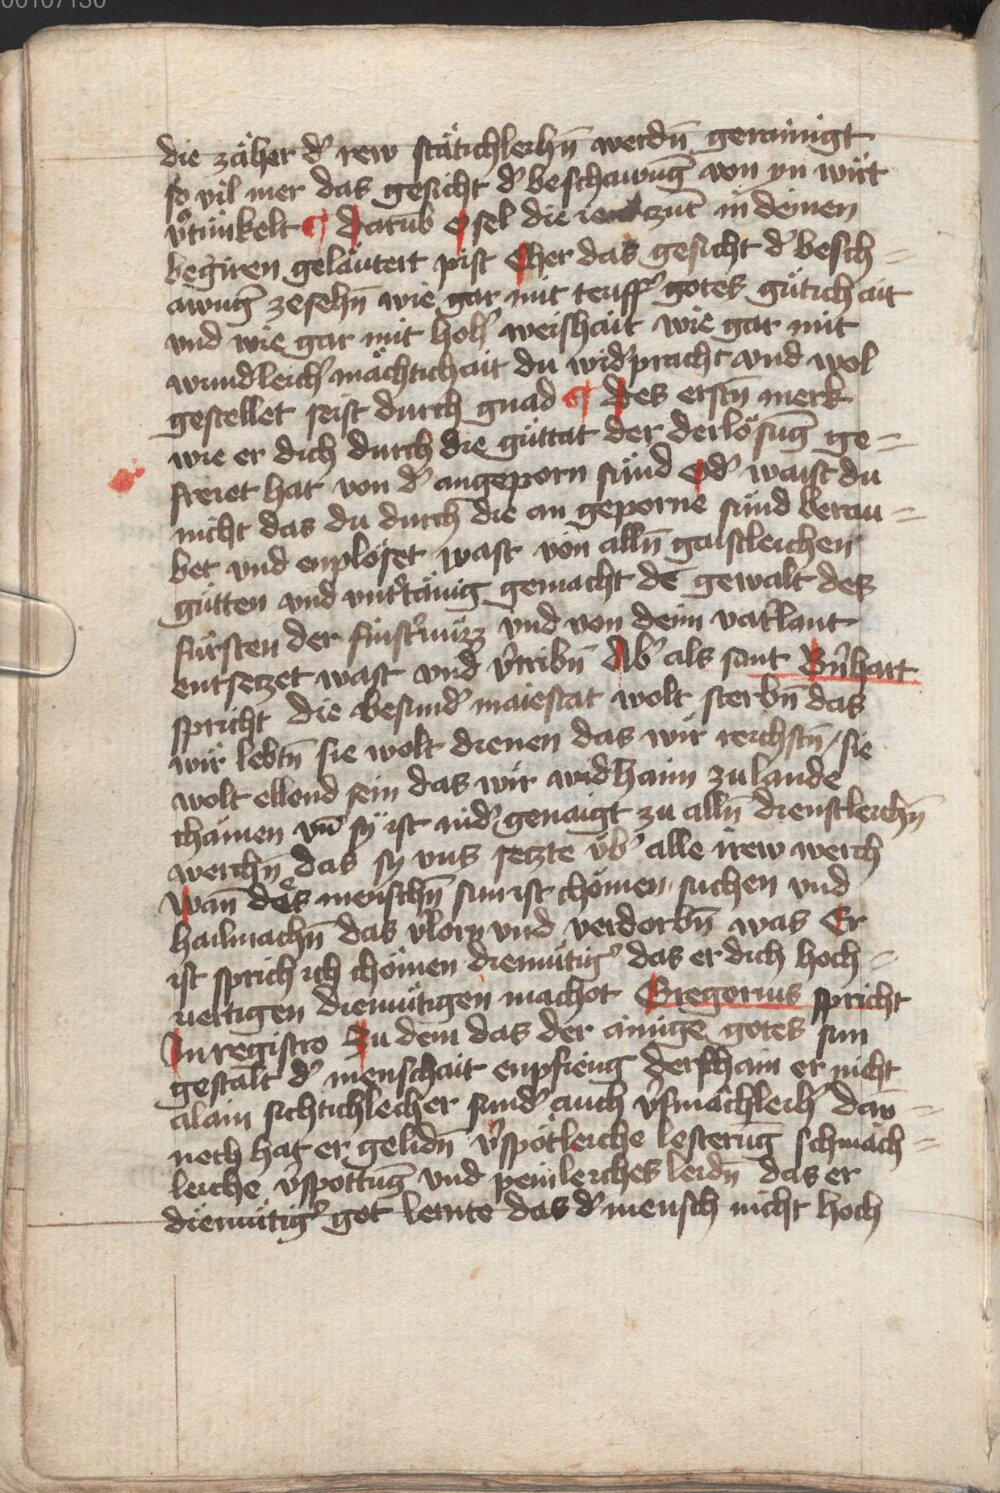 00107130
die zäher d' rew stätichleichn̄ werdn̄ gerainigt
so vil mer das gesicht d' beschawūg von yn wirt
v'tunkelt ¶ Darūb O sel die ieczūt in deinen
begiren geläutert pist Cher das gesicht d' besch=
awūg zesehn̄ wie gar mit teuff' gotes gütichait
vnd wie gar mit hoh' weishait wie gar mit
wundleich' mächtichait du wid'pracht vnd wol
gestellet seist durch gnad ¶ Des erstn̄ merk
wie er dich durch die güttat der derlösūg ge=
freiet hat von d' angeporn sünd Od' waist du
nicht das du durch die an geporne sünd berau=
bet vnd enplöset wast von alln̄ gaistleichen
gütten vnd vnt'tänig gemacht dē gewalt des
fürsten der finst'nüzz vnd von deim vat'lant
entsetzet wast vnd v'tribn̄ Ab' als sant B'nhart
spricht die besund' maiestat wolt sterbn̄ das
wir lebtn̄ sie wolt dienen das wir reichstn̄ / sie
wolt ellend sein das wir widhaim zu lande
chämen vn̄ sy ist nid' genaigt zu alln̄ dienstleichn̄
werchn̄ das sy vns setzte vb' alle irew werch
Wan̄ des menschn̄ sun ist chömen suchen vnd
hailmachn̄ das v'lorn vnd verdorbn̄ was Er
ist sprich ich chömen diemütig' das er dich hoch=
uertigen diemütigen machot Gregorius spricht
In registro Zu dem das der ainige gotes sun
gestalt d' menschait enpfieng derschain er nicht
alain sichtichlecher sund' auch v'smächleich' dan̄=
noch hat er gelidn̄ v'spötleiche lesterūg schmäch=
leiche v'spottūg vnd peinleiches leidn̄ das er
diemütig' got lernte das d' mensch nicht hoch